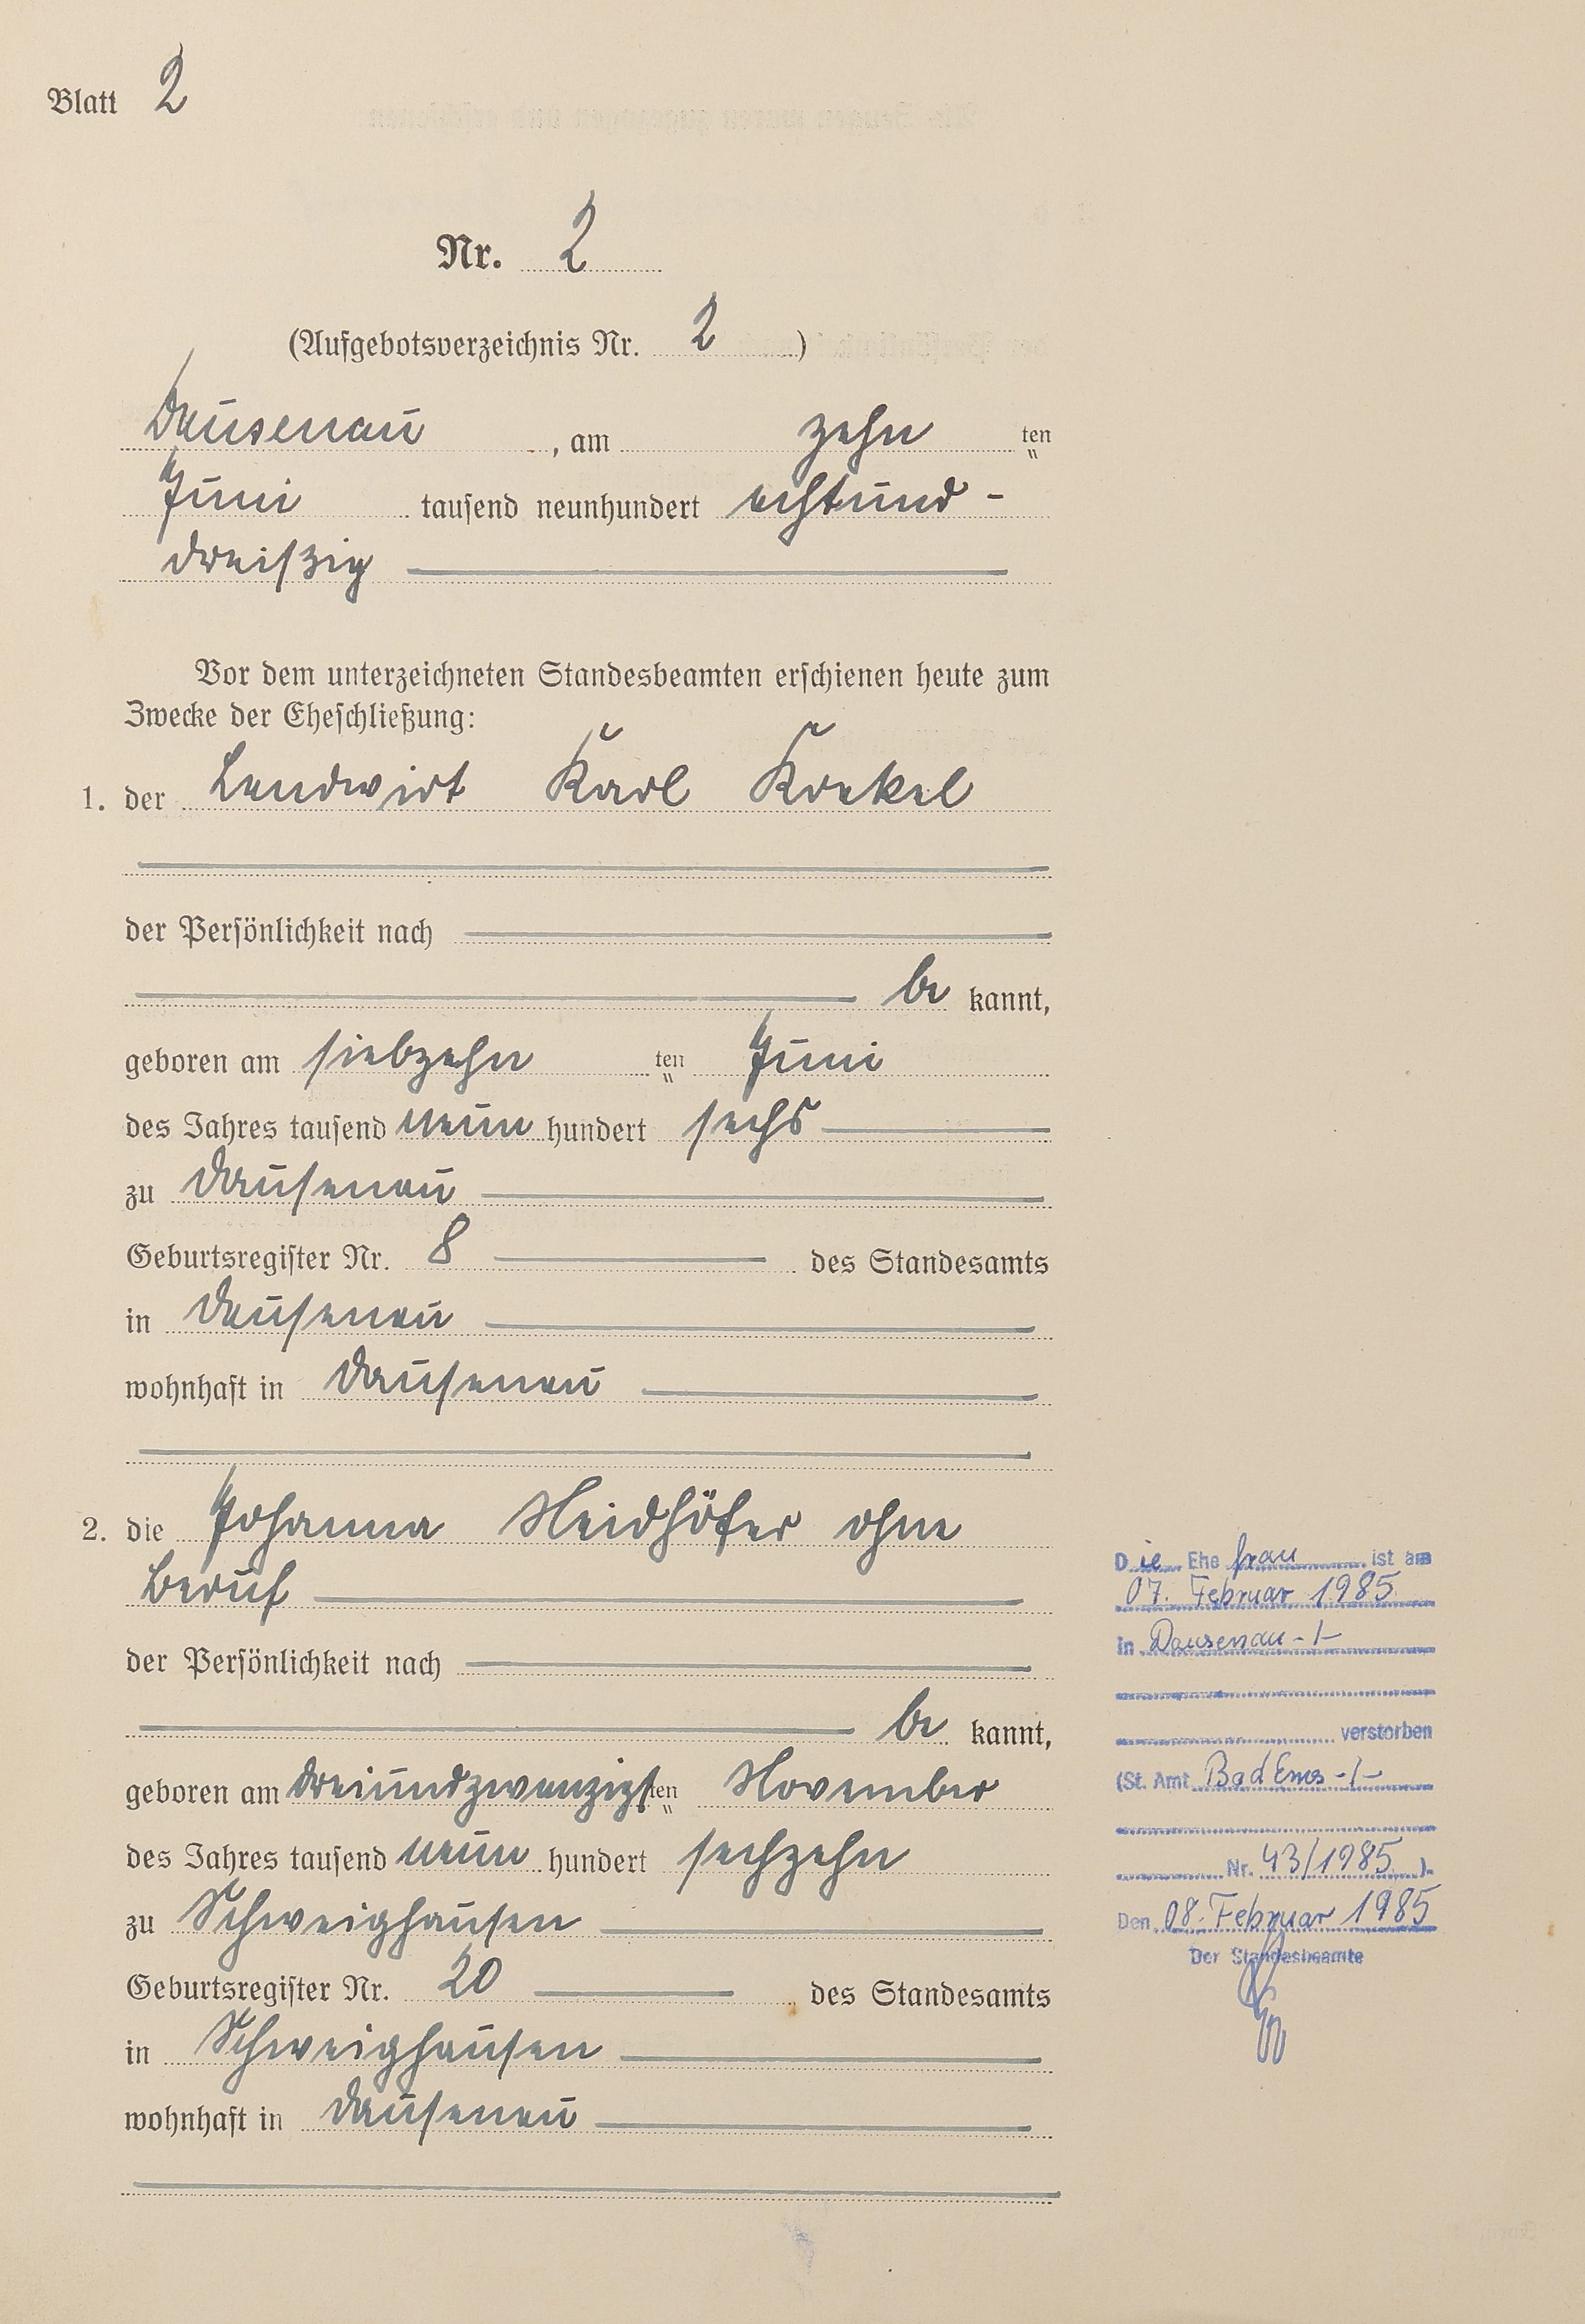 Blatt 2
Nr. 2
(Aufgebotsverzeichnis Nr. 2 )
Dausenau , am zehn ten
Juni tausend neunhundert achtund-
dreißig
Vor dem unterzeichneten Standesbeamten erschienen heute zum
Zwecke der Eheschließung:
1. der Landwirt Karl Krekel
der Persönlichkeit nach
be kannt,
geboren am siebzehn ten Juni
des Jahres tausend neun hundert sechs
zu Dausenau
Geburtsregister Nr. 8 des Standesamts
in Dausenau
wohnhaft in Dausenau
2. die Johanna Neidhöfer ohne
Beruf
der Persönlichkeit nach
be kannt,
geboren am dreiundzwanzigsten November
des Jahres tausend neun hundert sechzehn
zu Schweighausen
Geburtsregister Nr. 20 des Standesamts
in Schweighausen
wohnhaft in Dausenau
Die Ehe frau ist am
07. Februar 1985
in Dausenau -/-
verstorben
(St. Amt Bad Ems -/-
Nr. 43/1985 ).
Den 08. Februar 1985
Der Standesbeamte